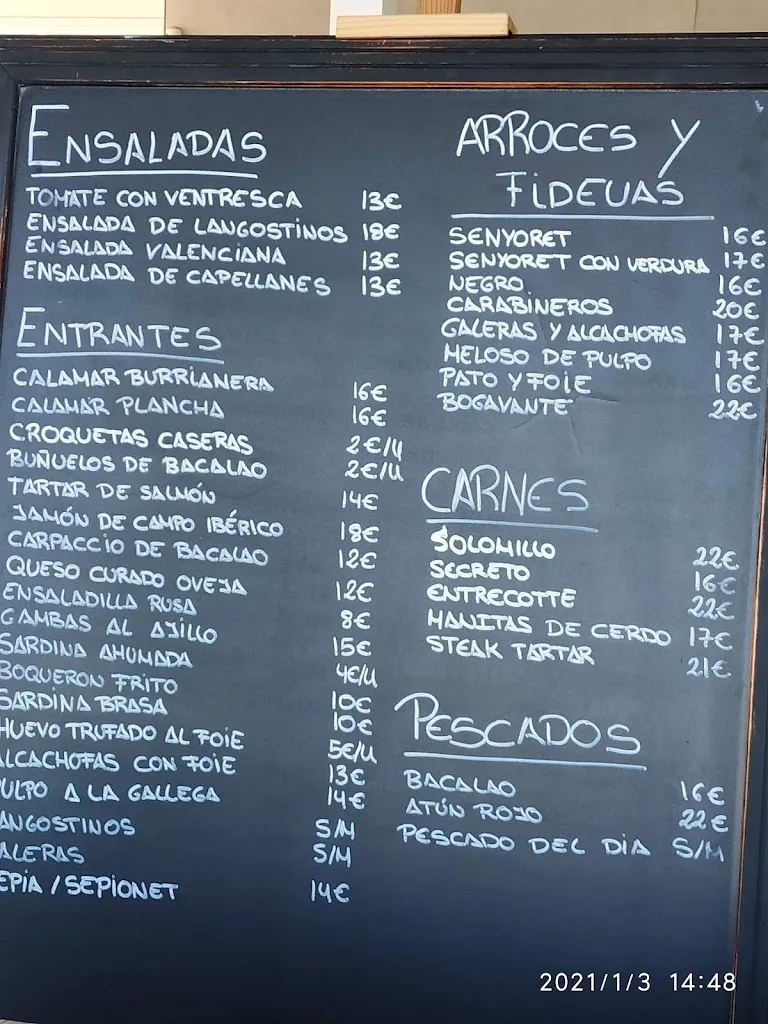 ENSALADAS
TOMATE CON VENTRESCA 13€
ENSALADA DE LANGOSTINOS 18€
ENSALADA VALENCIANA 13€
ENSALADA DE CAPELLANES 13€
ENTRANTES
CALAMAR BURRIANERA 16€
CALAMAR PLANCHA 16€
CROQUETAS CASERAS 2€/U
BUÑUELOS DE BACALAO 2€/U
TARTAR DE SALMÓN 14€
JAMÓN DE CAMPO IBÉRICO 18€
CARPACCIO DE BACALAO 12€
QUESO CURADO OVEJA 12€
ENSALADILLA RUSA 8€
GAMBAS AL AJILLO 15€
SARDINA AHUMADA 4€/U
BOQUERON FRITO 10€
SARDINA BRASA 10€
HUEVO TRUFADO AL FOIE 5€/U
ALCACHOFAS CON FOIE 13€
ULPO A LA GALLEGA 14€
ANGOSTINOS S/M
ALERAS S/M
EPIA / SEPIONET 14€
ARROCES Y
FIDEUAS
SENYORET 16€
SENYORET CON VERDURA 17€
NEGRO 16€
CARABINEROS 20€
GALERAS Y ALCACHOFAS 17€
MELOSO DE PULPO 17€
PATO Y FOIE 16€
BOGAVANTE 22€
CARNES
SOLOMILLO 22€
SECRETO 16€
ENTRECOTTE 22€
MANITAS DE CERDO 17€
STEAK TARTAR 21€
PESCADOS
BACALAO 16€
ATÚN ROJO 22€
PESCADO DEL DIA S/M
2021/1/3 14:48